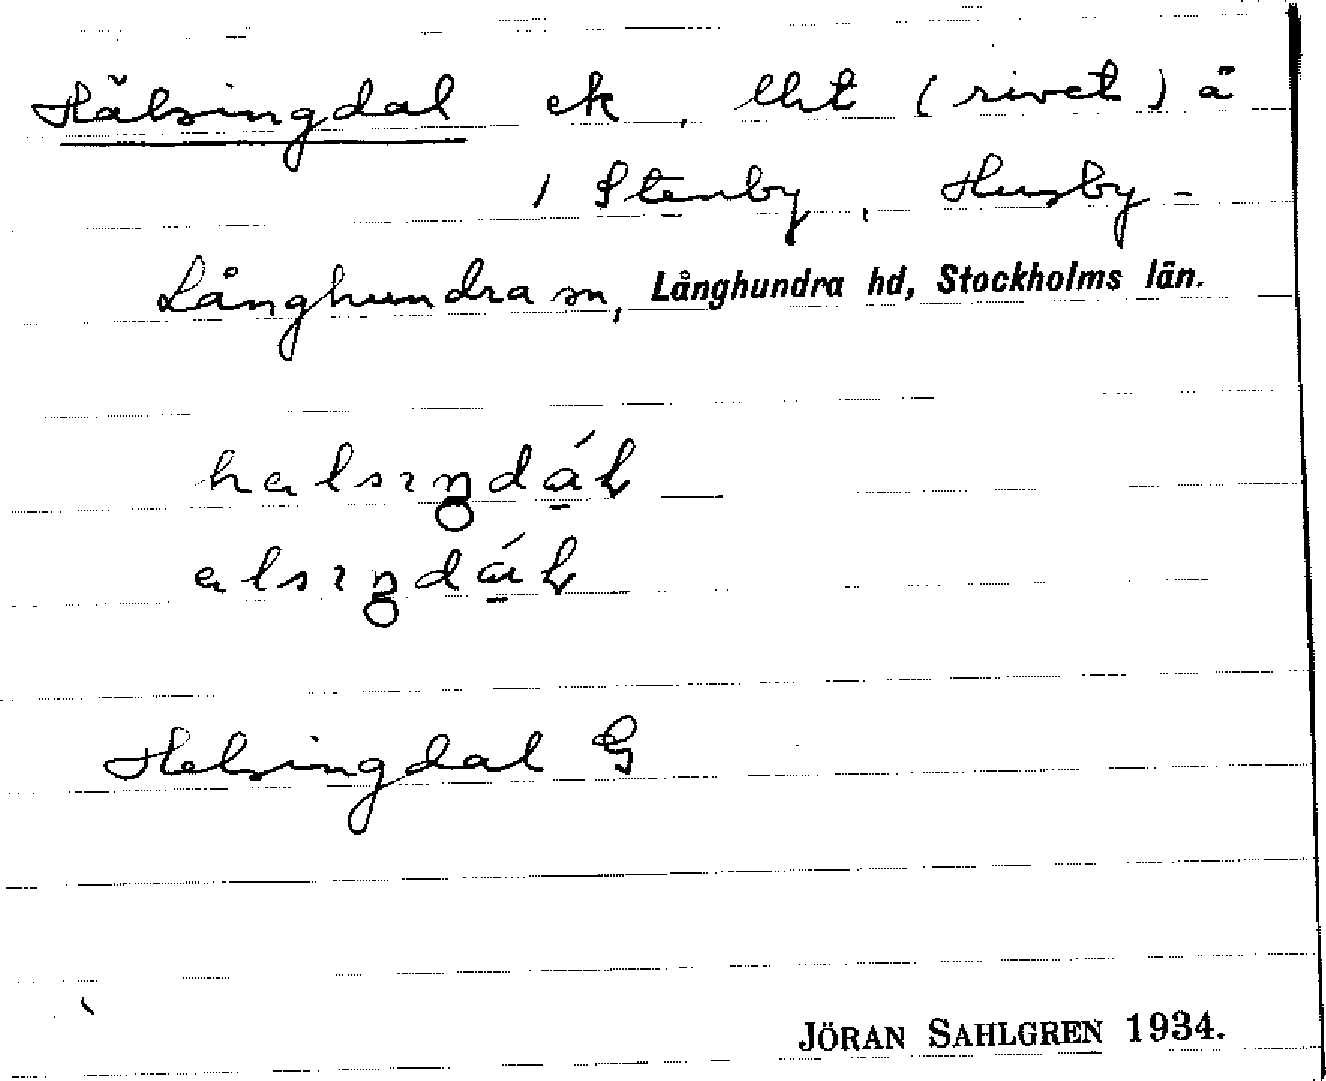 Hälsingdal ek, lht (rivet) å
1 Stenby, Husby-
Långhundra sn, Långhundra hd, Stockholms län.
halsıŋdál
alsıŋdál
Helsingdal G
JÖRAN SAHLGREN 1934.